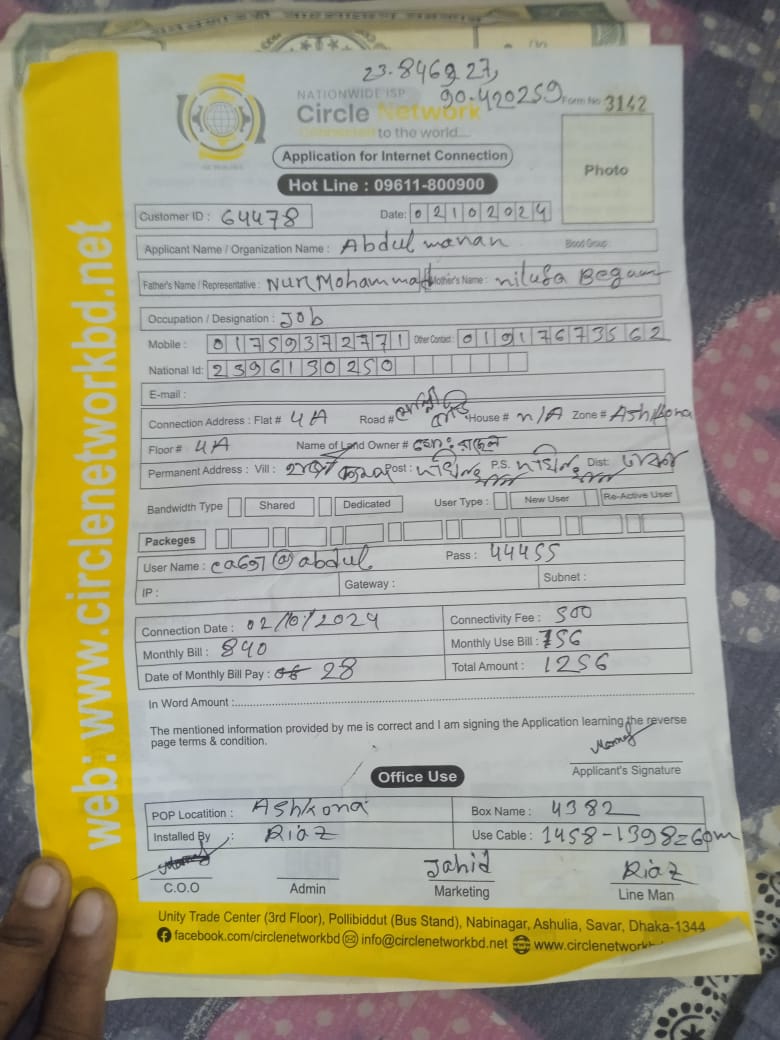 23.846927,
90.420259
NATIONWIDE ISP
Circle Network
Connected to the world....
Form No 3142
Application for Internet Connection
Photo
Hot Line : 09611-800900
Customer ID : 64478 Date: 02102024
Applicant Name / Organization Name : Abdul manan Blood Group
Father's Name / Representative : Nur Mohammad Mother's Name : nilufa Begam
Occupation / Designation : Job
Mobile : 01759372771 Other Contact : 01917673562
National Id: 2396130250
E-mail :
Connection Address : Flat # 4A Road # House # n/A Zone # Ashkona
Floor # 4A Name of Land Owner # মোঃ রাসেল
Permanent Address : Vill : Post : P.S. Dist:
Bandwidth Type Shared Dedicated User Type : New User Re-Active User
Packeges
User Name : @abdul Pass : 44455
IP : Gateway : Subnet :
Connection Date : 02/10/2024 Connectivity Fee : 500
Monthly Bill : 840 Monthly Use Bill : 756
Date of Monthly Bill Pay : 28 Total Amount : 1256
In Word Amount :
The mentioned information provided by me is correct and I am signing the Application learning the reverse
page terms & condition.
Applicant's Signature
Office Use
POP Locatition : Ashkona Box Name : 4382
Installed By : Riaz Use Cable : 1458-1398=60m
Jahid Riaz
C.O.O Admin Marketing Line Man
Unity Trade Center (3rd Floor), Pollibiddut (Bus Stand), Nabinagar, Ashulia, Savar, Dhaka-1344
facebook.com/circlenetworkbd info@circlenetworkbd.net www.circlenetworkb
web: www.circlenetworkbd.net